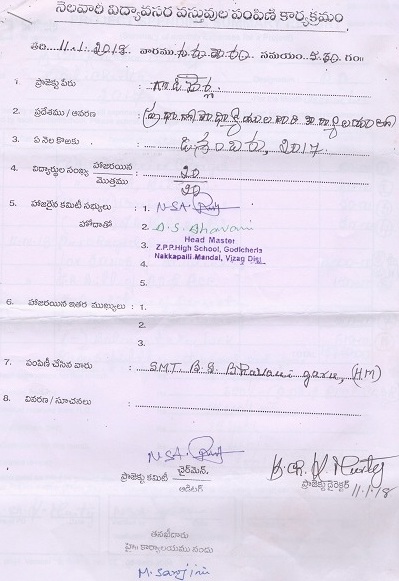 నెలవారీ విద్యావసర వస్తువుల పంపిణి కార్యక్రమం
తేది...11.1.2018. వారము.గురువారం. సమయం..5.30 గం॥
1. ప్రాజెక్టు పేరు : గాడిచెర్ల
2. ప్రదేశము / ఆవరణ : ప్రధానోపాధ్యాయుల వారి కార్యాలయం
3. ఏ నెల కొఱకు : డిశంబరు, 2017.
4. విద్యార్థుల సంఖ్య హాజరయిన : 20
మొత్తము 20
5. హాజరైన కమిటీ సభ్యులు : 1. N.SA.
హోదాతో 2. D.S. Bhavani
3. Head Master
Z.P.P.High School, Godicherla
Nakkapalli Mandal, Vizag Dist
4.
5.
6. హాజరయిన ఇతర ముఖ్యులు : 1.
2.
3.
7. పంపిణీ చేసిన వారు : SMT. B.S. Bhavani garu, (HM)
8. వివరణ / సూచనలు :
N.SA.
ప్రాజెక్టు కమిటీ చైర్మెన్.
ఆడిటర్
B.Ch.V. Murty
ప్రాజెక్టు డైరెక్టర్ 11.1.18
తనఖీదారు
హై॥ కార్యాలయము నందు
M. Sarojini